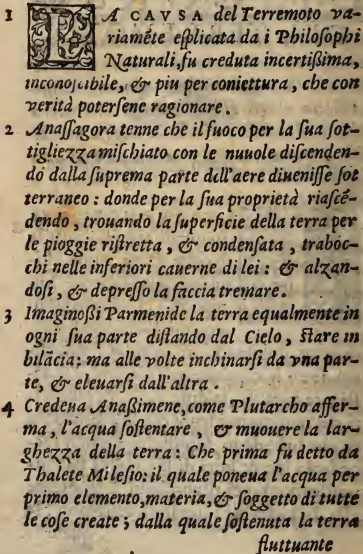 1 LA CAVSA del Terremoto va-
riamẽte eſplicata da i Philoſophi
Naturali, fu creduta incertißima,
inconoſcibile, & piu per coniettura, che con
verità poterſene ragionare.
2 Anaſſagora tenne che il fuoco per la ſua ſot-
tigliezza miſchiato con le nuuole diſcenden-
do dalla ſuprema parte dell'aere diueniſſe ſot
terraneo : donde per la ſua proprietà riaſcẽ-
dendo, trouando la ſuperficie della terra per
le pioggie riſtretta, & condenſata, traboc-
chi nelle inferiori cauerne di lei : & alzan-
doſi, & depreſſo la faccia tremare.
3 Imaginoßi Parmenide la terra equalmente in
ogni ſua parte diſtando dal Cielo, ſtare in
bilãcia; ma alle volte inchinarſi da vna par-
te, & eleuarſi dall'altra.
4 Credeua Anaßimene, come Plutarcho affer-
ma, l'acqua ſoſtentare, & muouere la lar-
ghezza della terra : Che prima fu detto da
Thalete Mileſio: il quale poneua l'acqua per
primo elemento, materia, & ſoggetto di tutte
le coſe create ; dalla quale ſoſtenuta la terra
fluttuante